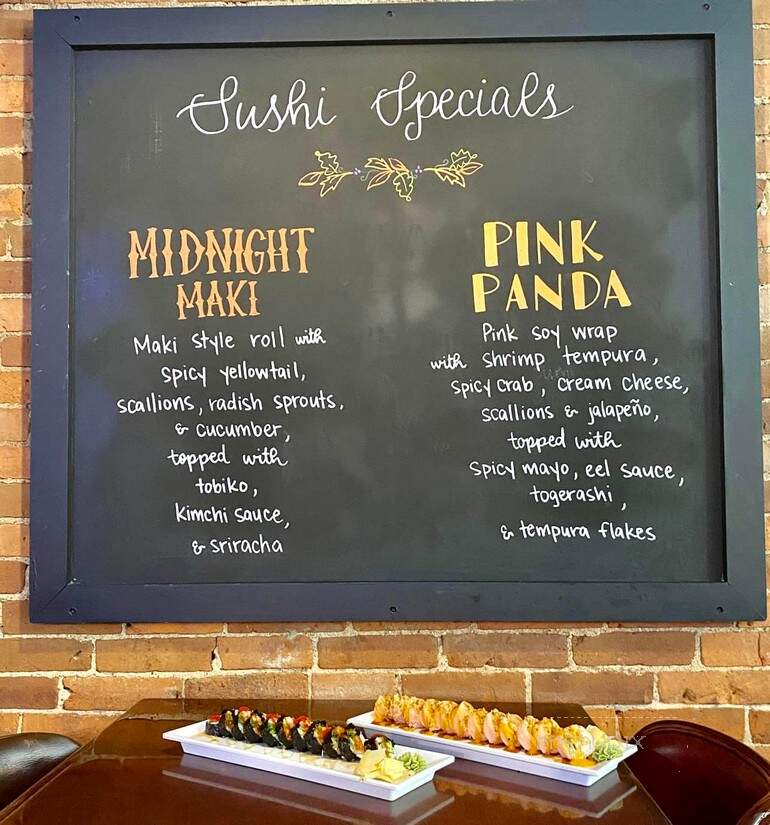 Sushi Specials
MIDNIGHT
MAKI
Maki style roll with
spicy yellowtail,
scallions, radish sprouts,
& cucumber,
topped with
tobiko,
kimchi sauce,
& sriracha
PINK
PANDA
Pink soy wrap
with shrimp tempura,
spicy crab, cream cheese,
scallions & jalapeño,
topped with
spicy mayo, eel sauce,
togerashi,
& tempura flakes